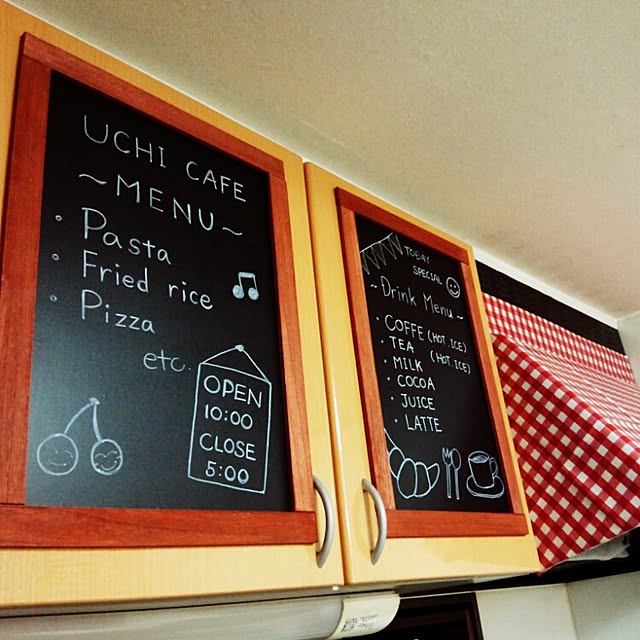 UCHI CAFE
~MENU~
• Pasta
• Fried rice
• Pizza
etc.
OPEN
10:00
CLOSE
5:00
TODAY
SPECIAL
~Drink Menu~
• COFFE (HOT.ICE)
• TEA (HOT.ICE)
• MILK
• COCOA
• JUICE
• LATTE